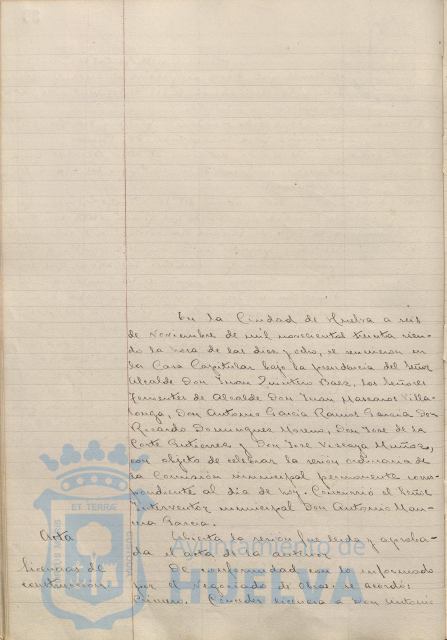 En la Ciudad de Huelva a seis
de Noviembre de mil novecientos treinta sien-
do la hora de las diez y ocho, se reunieron en
la Casa Capitular bajo la presidencia del Señor
Alcalde Don Juan Quintero Baez, los Señores
Tenientes de Alcalde Don Juan Mascaros Villa-
longa, Don Antonio Garcia Ramos Garcia, Don
Ricardo Dominguez Moreno, Don José de la
Corte Gutierrez y Don José Vizcaya Muñoz,
con objeto de celebrar la sesión ordinaria de
la Comisión municipal permanente corres-
pondiente al día de hoy. Concurrió el Señor
Interventor municipal Don Antonio Man-
Garcia.
Acta
Abierta la sesión fue leida y aproba-
da el acta de la anterior.
Licencias de
construcción
De conformidad con lo informado
por el Negociado de Obras, se acordó:
Primero. Conceder licencia a Don Antonio
ET TERRAE
Ayuntamiento de
HUELVA